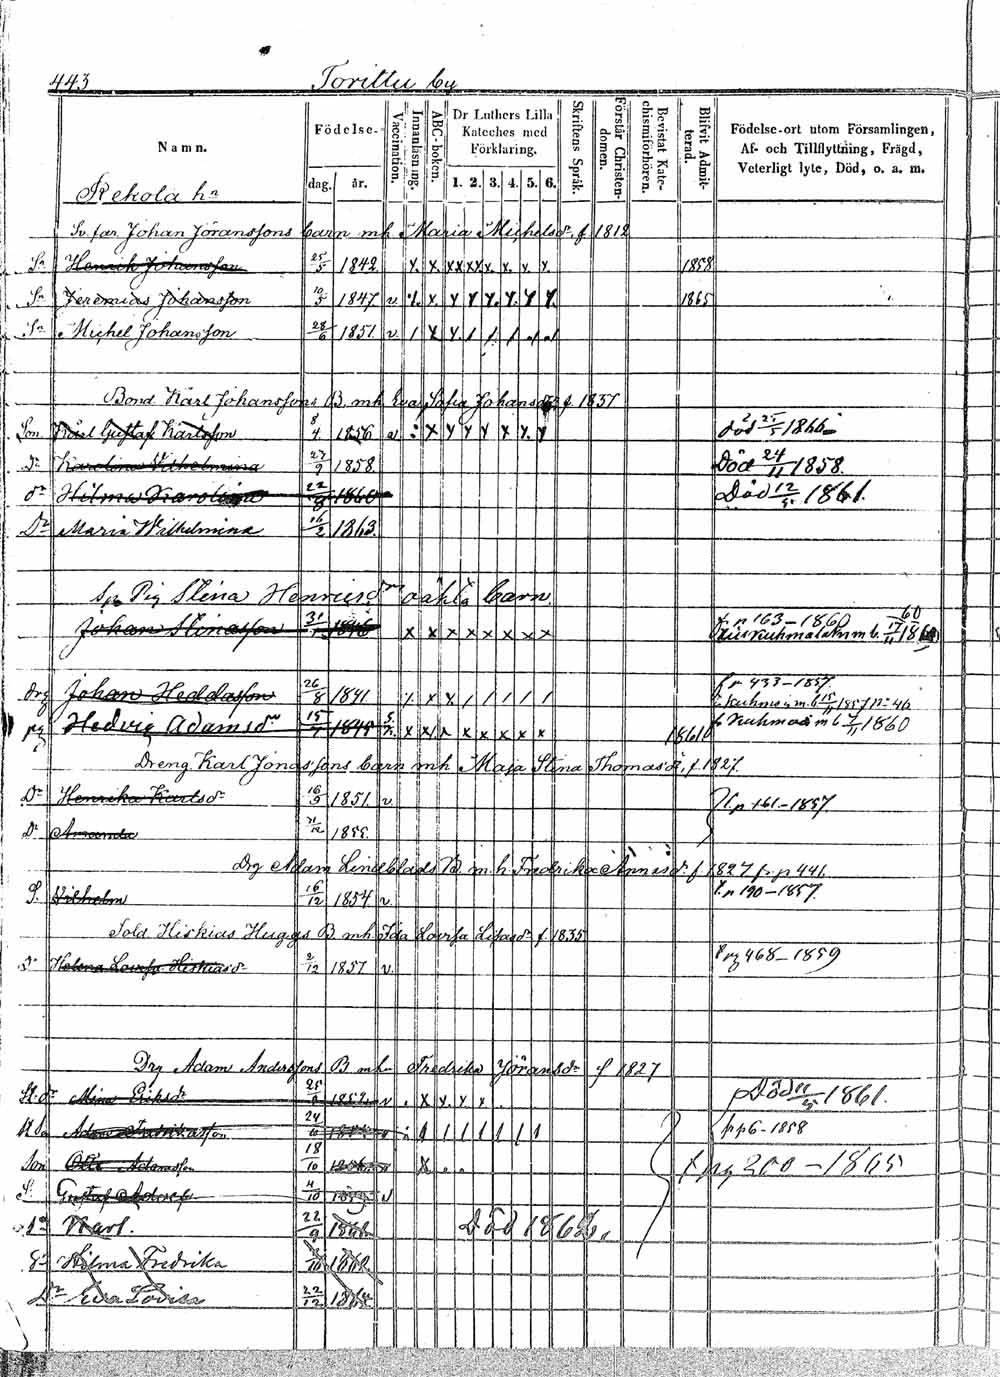 443 Torittu by
Namn.
Födelse-
dag. år.
Vaccination.
Innanläsning.
ABC-boken.
Dr Luthers Lilla
Kateches med
Förklaring.
1. 2. 3. 4. 5. 6.
Skriftens Språk.
Förstår Christen-
domen.
Bevistat Kate-
chismiförhören.
Blifvit Admit-
terad.
Födelse-ort utom Församlingen,
Af- och Tillflyttning, Frägd,
Veterligt lyte, Död, o. a. m.
Rekola hn
Sv. far. Johan Jöranssons barn mh Maria Michelsdr f 1812
Sn Henrich Johansson 25/5 1842 1858
Sn Jeremias Johansson 10/5 1847 v 1865
Sn Michel Johansson 28/6 1851 v
Bond Karl Johanssons B. mh Eva Safia Johansdr f 1837
Son Karl Gustaf Karlsson 8/4 1856 v död 25/5 1866
Dr Karolina Vilhelmina 27/9 1858 Död 24/11 1858.
dr Hilma Karolina 22/8 1860 Död 12/5 1861.
Dr Maria Wilhelmina 16/2 1863.
Pig Stina Henricsdrs oäkta barn.
Johan Stinasson 31/ 1846 p 163-1860
Drg Johan Heddasson 26/8 1841 p 433-1857
Kuhmois m. b 15/ 1857 No 46
pg Hedvig Adamsdr 15/ 1845 1861 f Kuhmois m b 7/11 1860
Dreng Karl Jonassons barn mh Maja Stina Thomasdr, f 1827.
Dr Henrika Karlsdr 16/9 1851 v p 161-1857
Dr Amanda 21/12 1855.
Drg Adam Lindblads B. m h Fredrika Annasdr f 1827 fr p 441
S. Vilhelm 16/12 1854 v p 190-1857.
Sold Hiskias Huggs B mh Ida Lovisa Lisasdr f 1835
Dr Helena Lovisa Hiskiasdr 2/12 1857 v. pg 468-1859
Drg Adam Anderssons B mh Fredrika Jöransdr f 1827
St. dr Mina Eriksdr 25/ 1852 v Död 11/5 1861.
St So Adam Fredrikasson 24/ pp 6-1858
Son Otto Adamsson 18/10 pg 200-1865
S. Gustaf Adolf 4/10 1859 v
Sn Karl. 22/9 Död 1862.
Dr Hilma Fredrika /10 1862
Dr Eva Lovisa 22/12 1864